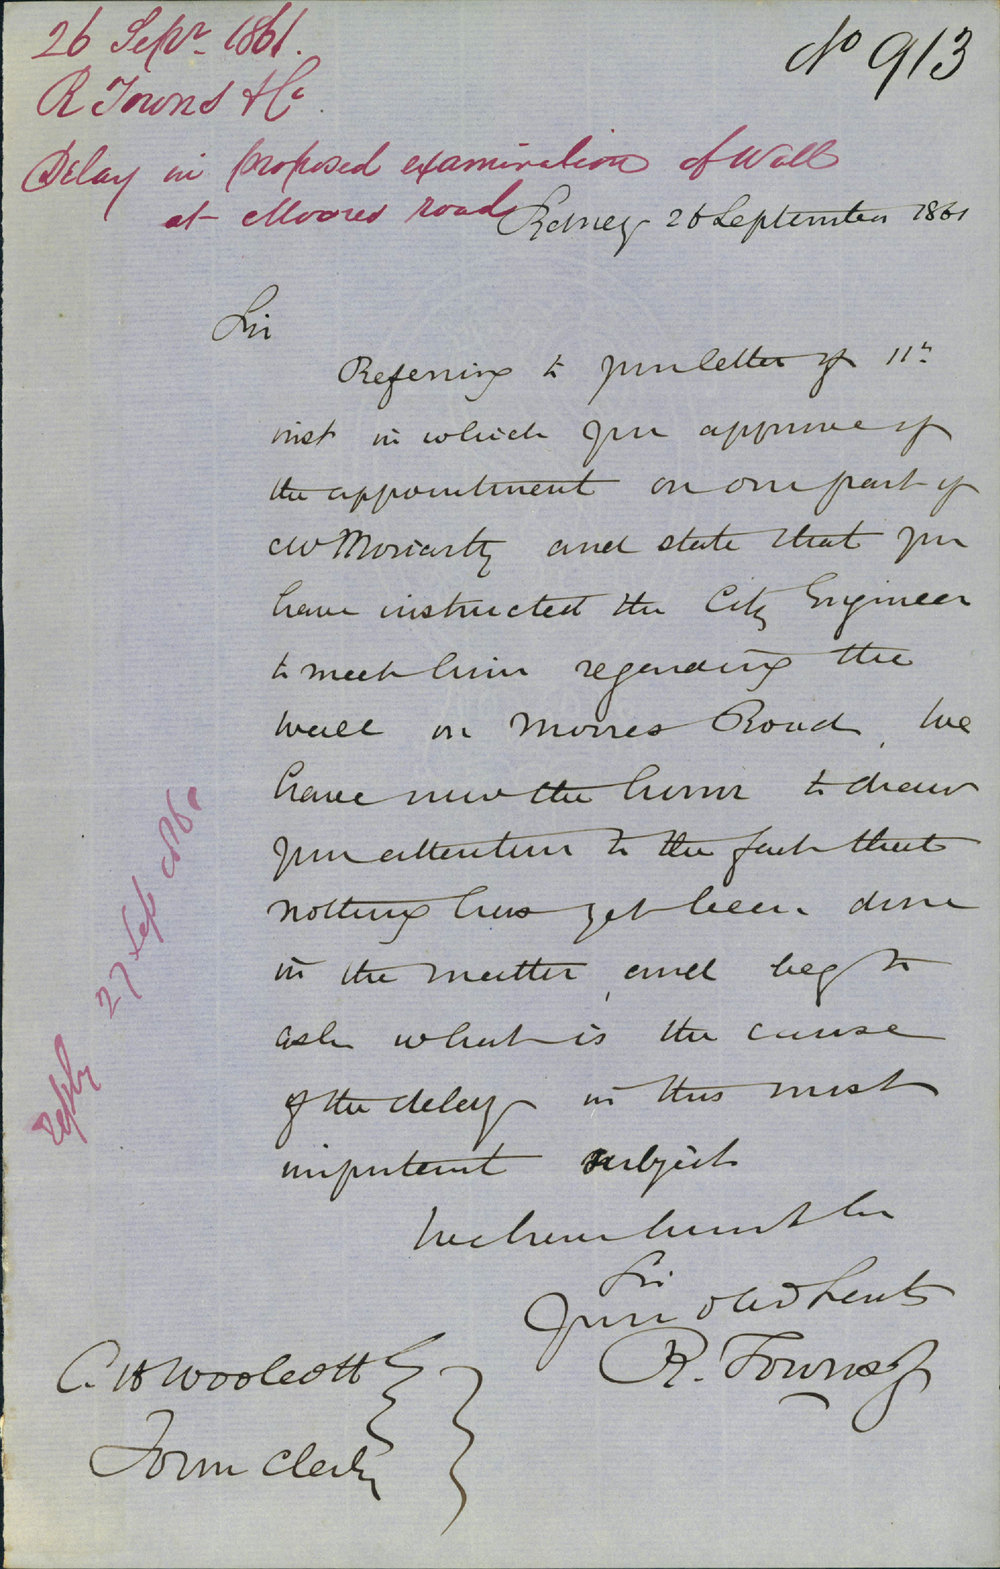 26 Sepr. 1861.
R Towns & Co.
Delay in proposed examination of Wall
at Moores road
No 913
Sydney 26 September 1861
Sir
Referring to your letter of 11th
inst in which you approve of
the appointment on our part of
Mr Moriarty and state that you
have instructed the City Engineer
to meet him regarding the
wall on Moores Road, We
have now the honor to draw
your attention to the fact that
nothing has yet been done
in the matter, and beg to
ask what is the cause
of the delay in this most
important subject
We have honor to be
Sir
Your Obedt Servts
R. Towns &
C. H Woolcott
Town Clerk
reply 27 Sept